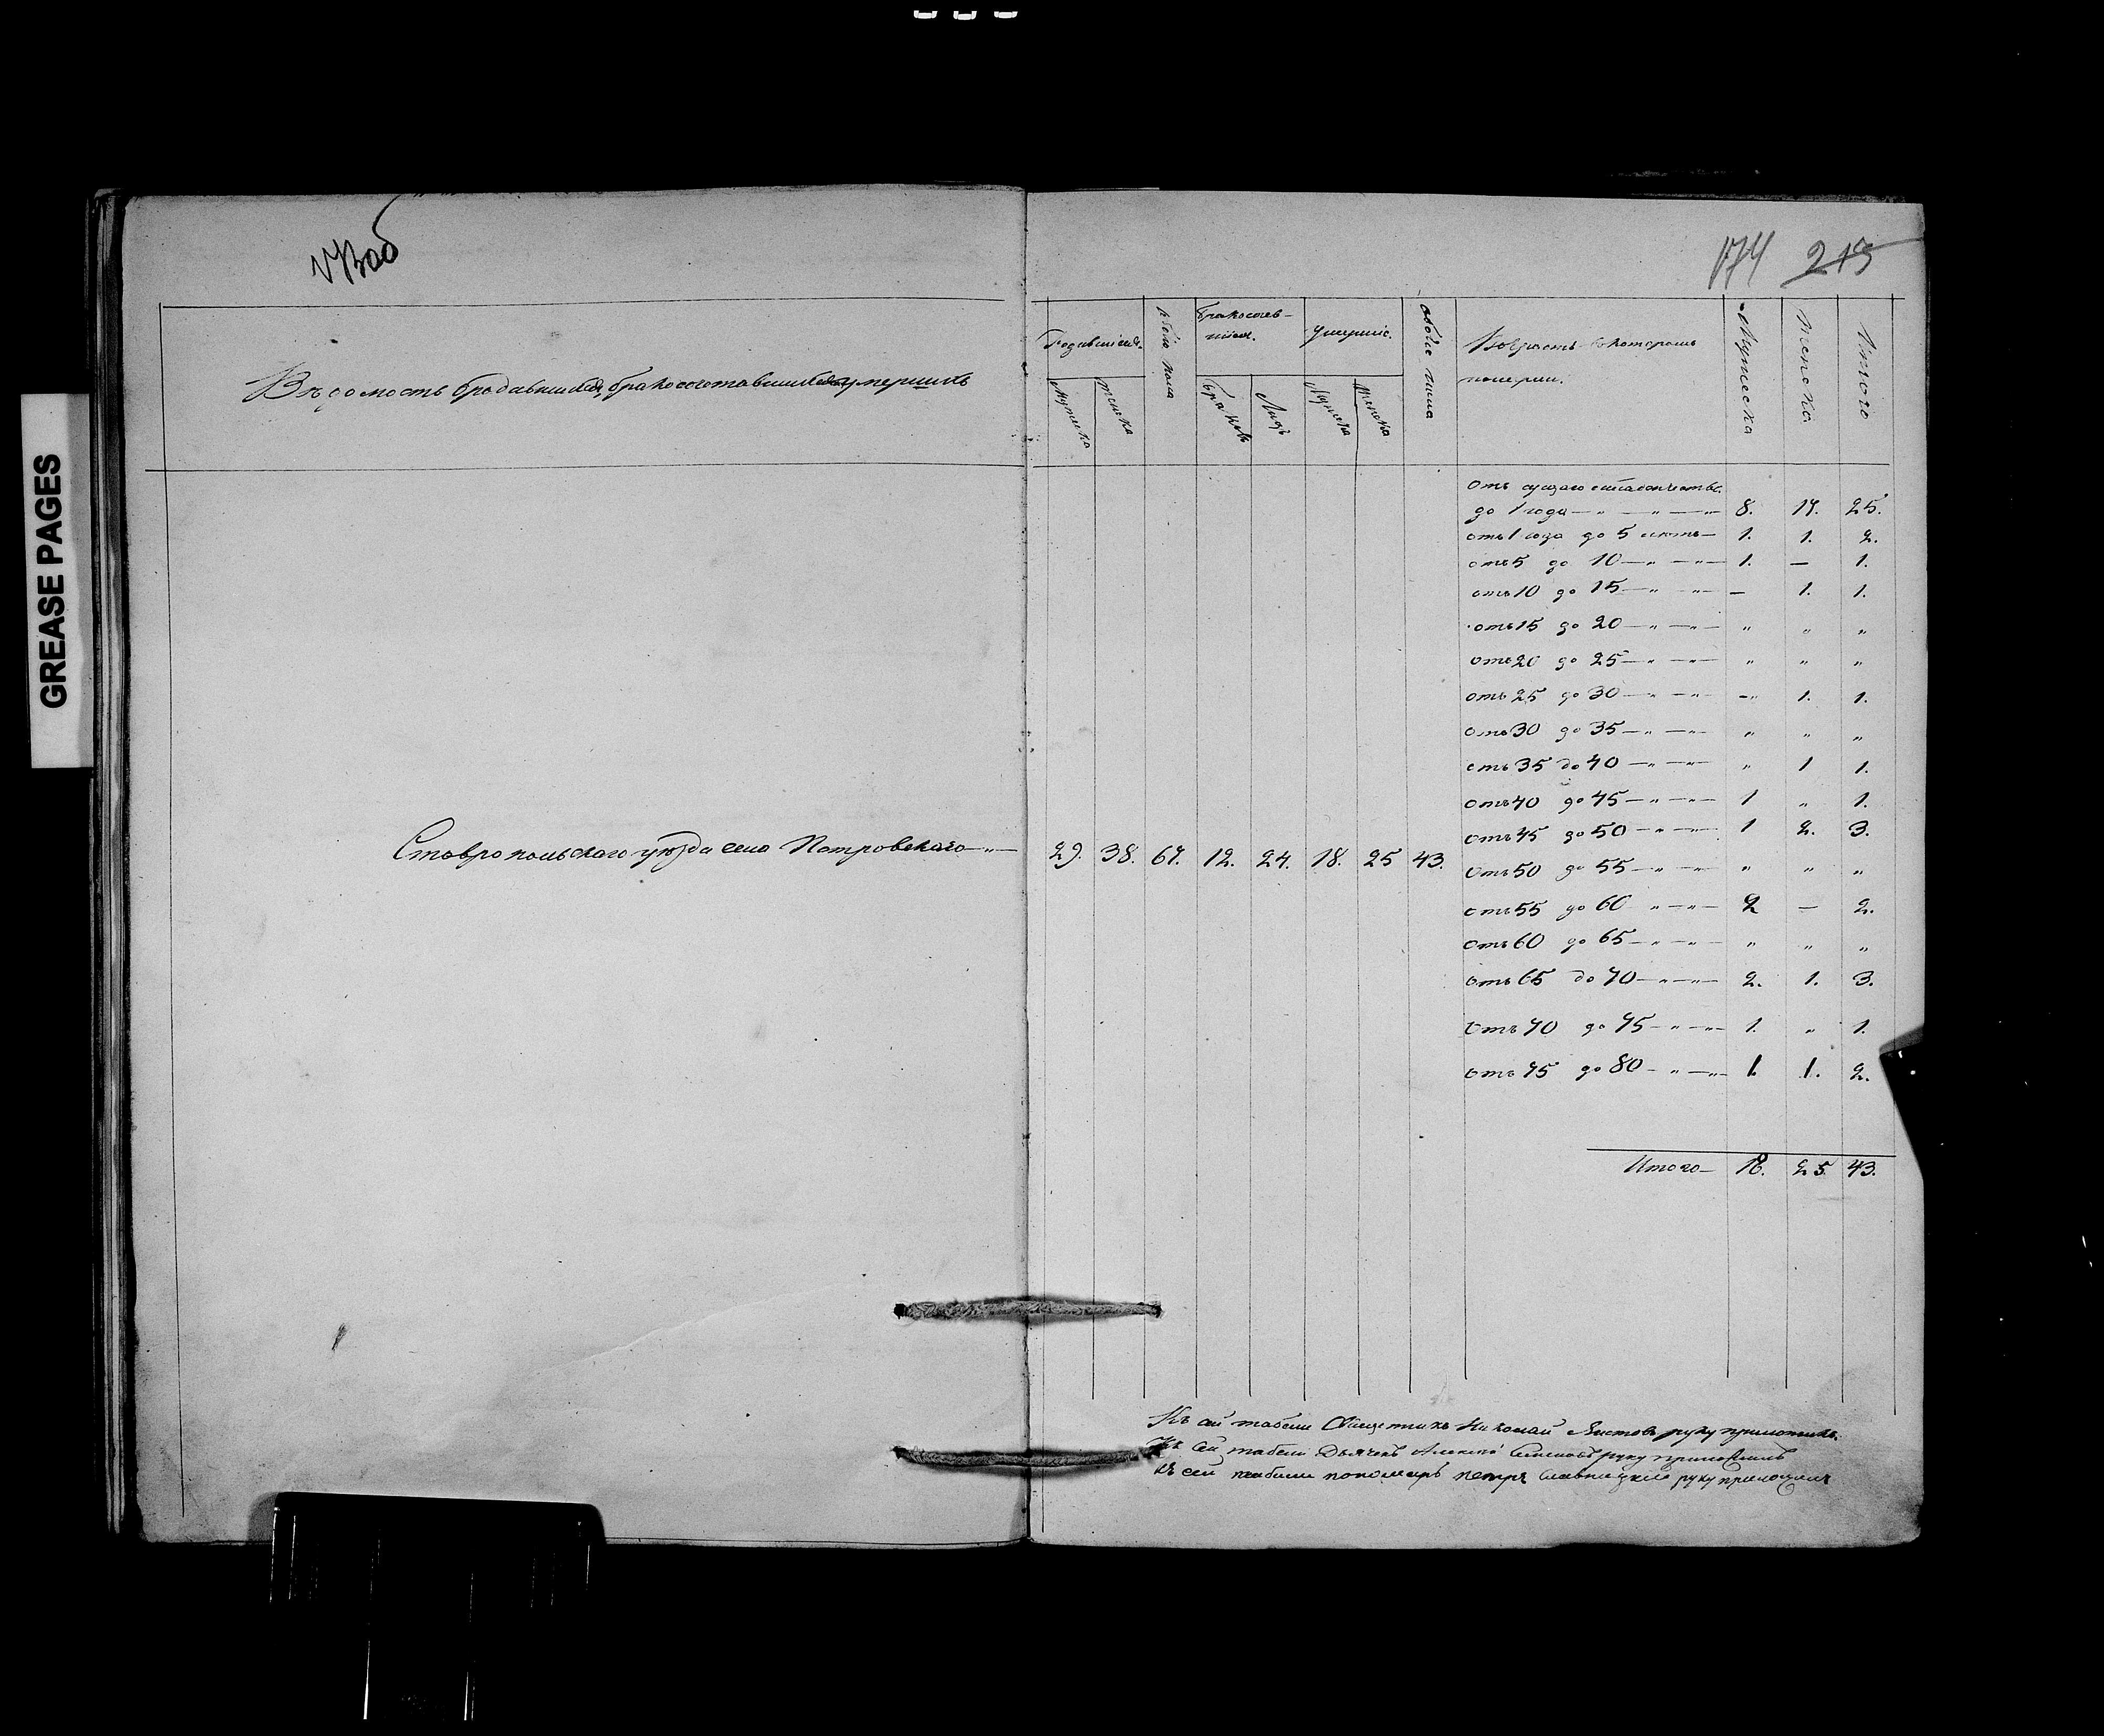 GREASE PAGES
174 215
Вѣдомость о родившихся, бракосочетавшихся, умершихъ
Родившіеся. обоего пола Бракосочетавшіеся. Умершіе. обоего пола Возрастъ в которомъ
померли. Мужеска Женска Итого
Мужеска женска Браковъ Лицъ Мужеска Женска
Отъ сущаго младенчества
до 1 года — „ — „ — „ 8. 17. 25.
отъ 1 года до 5 лѣтъ — 1. 1. 2.
отъ 5 до 10 — „ — „ — 1. — 1.
отъ 10 до 15 — „ — „ — — 1. 1.
отъ 15 до 20 — „ — „ — „ „ „
отъ 20 до 25 — „ — „ — „ „ „
отъ 25 до 30 — „ — „ — — 1. 1.
отъ 30 до 35 — „ — „ — „ „ „
отъ 35 до 40 — „ — „ — „ 1 1.
отъ 40 до 45 — „ — „ — 1 „ 1.
отъ 45 до 50 — „ — „ — 1 2. 3.
Ставропольскаго уѣзда села Петровскаго — „ — 29. 38. 67. 12. 24. 18. 25 43.
отъ 50 до 55 — „ — „ — „ „ „
отъ 55 до 60 „ — „ — 2 — 2.
отъ 60 до 65 — „ — „ — „ „ „
отъ 65 до 70 — „ — „ — 2. 1. 3.
отъ 70 до 75 — „ — „ — 1. „ 1.
отъ 75 до 80 — „ — „ — 1. 1. 2.
Итого — 18. 25. 43.
Къ сей табели Священникъ Николай Листовъ руку приложилъ.
Къ сей табели Дьячекъ Алексѣй руку приложилъ
Къ сей табели пономарь петръ руку приложилъ